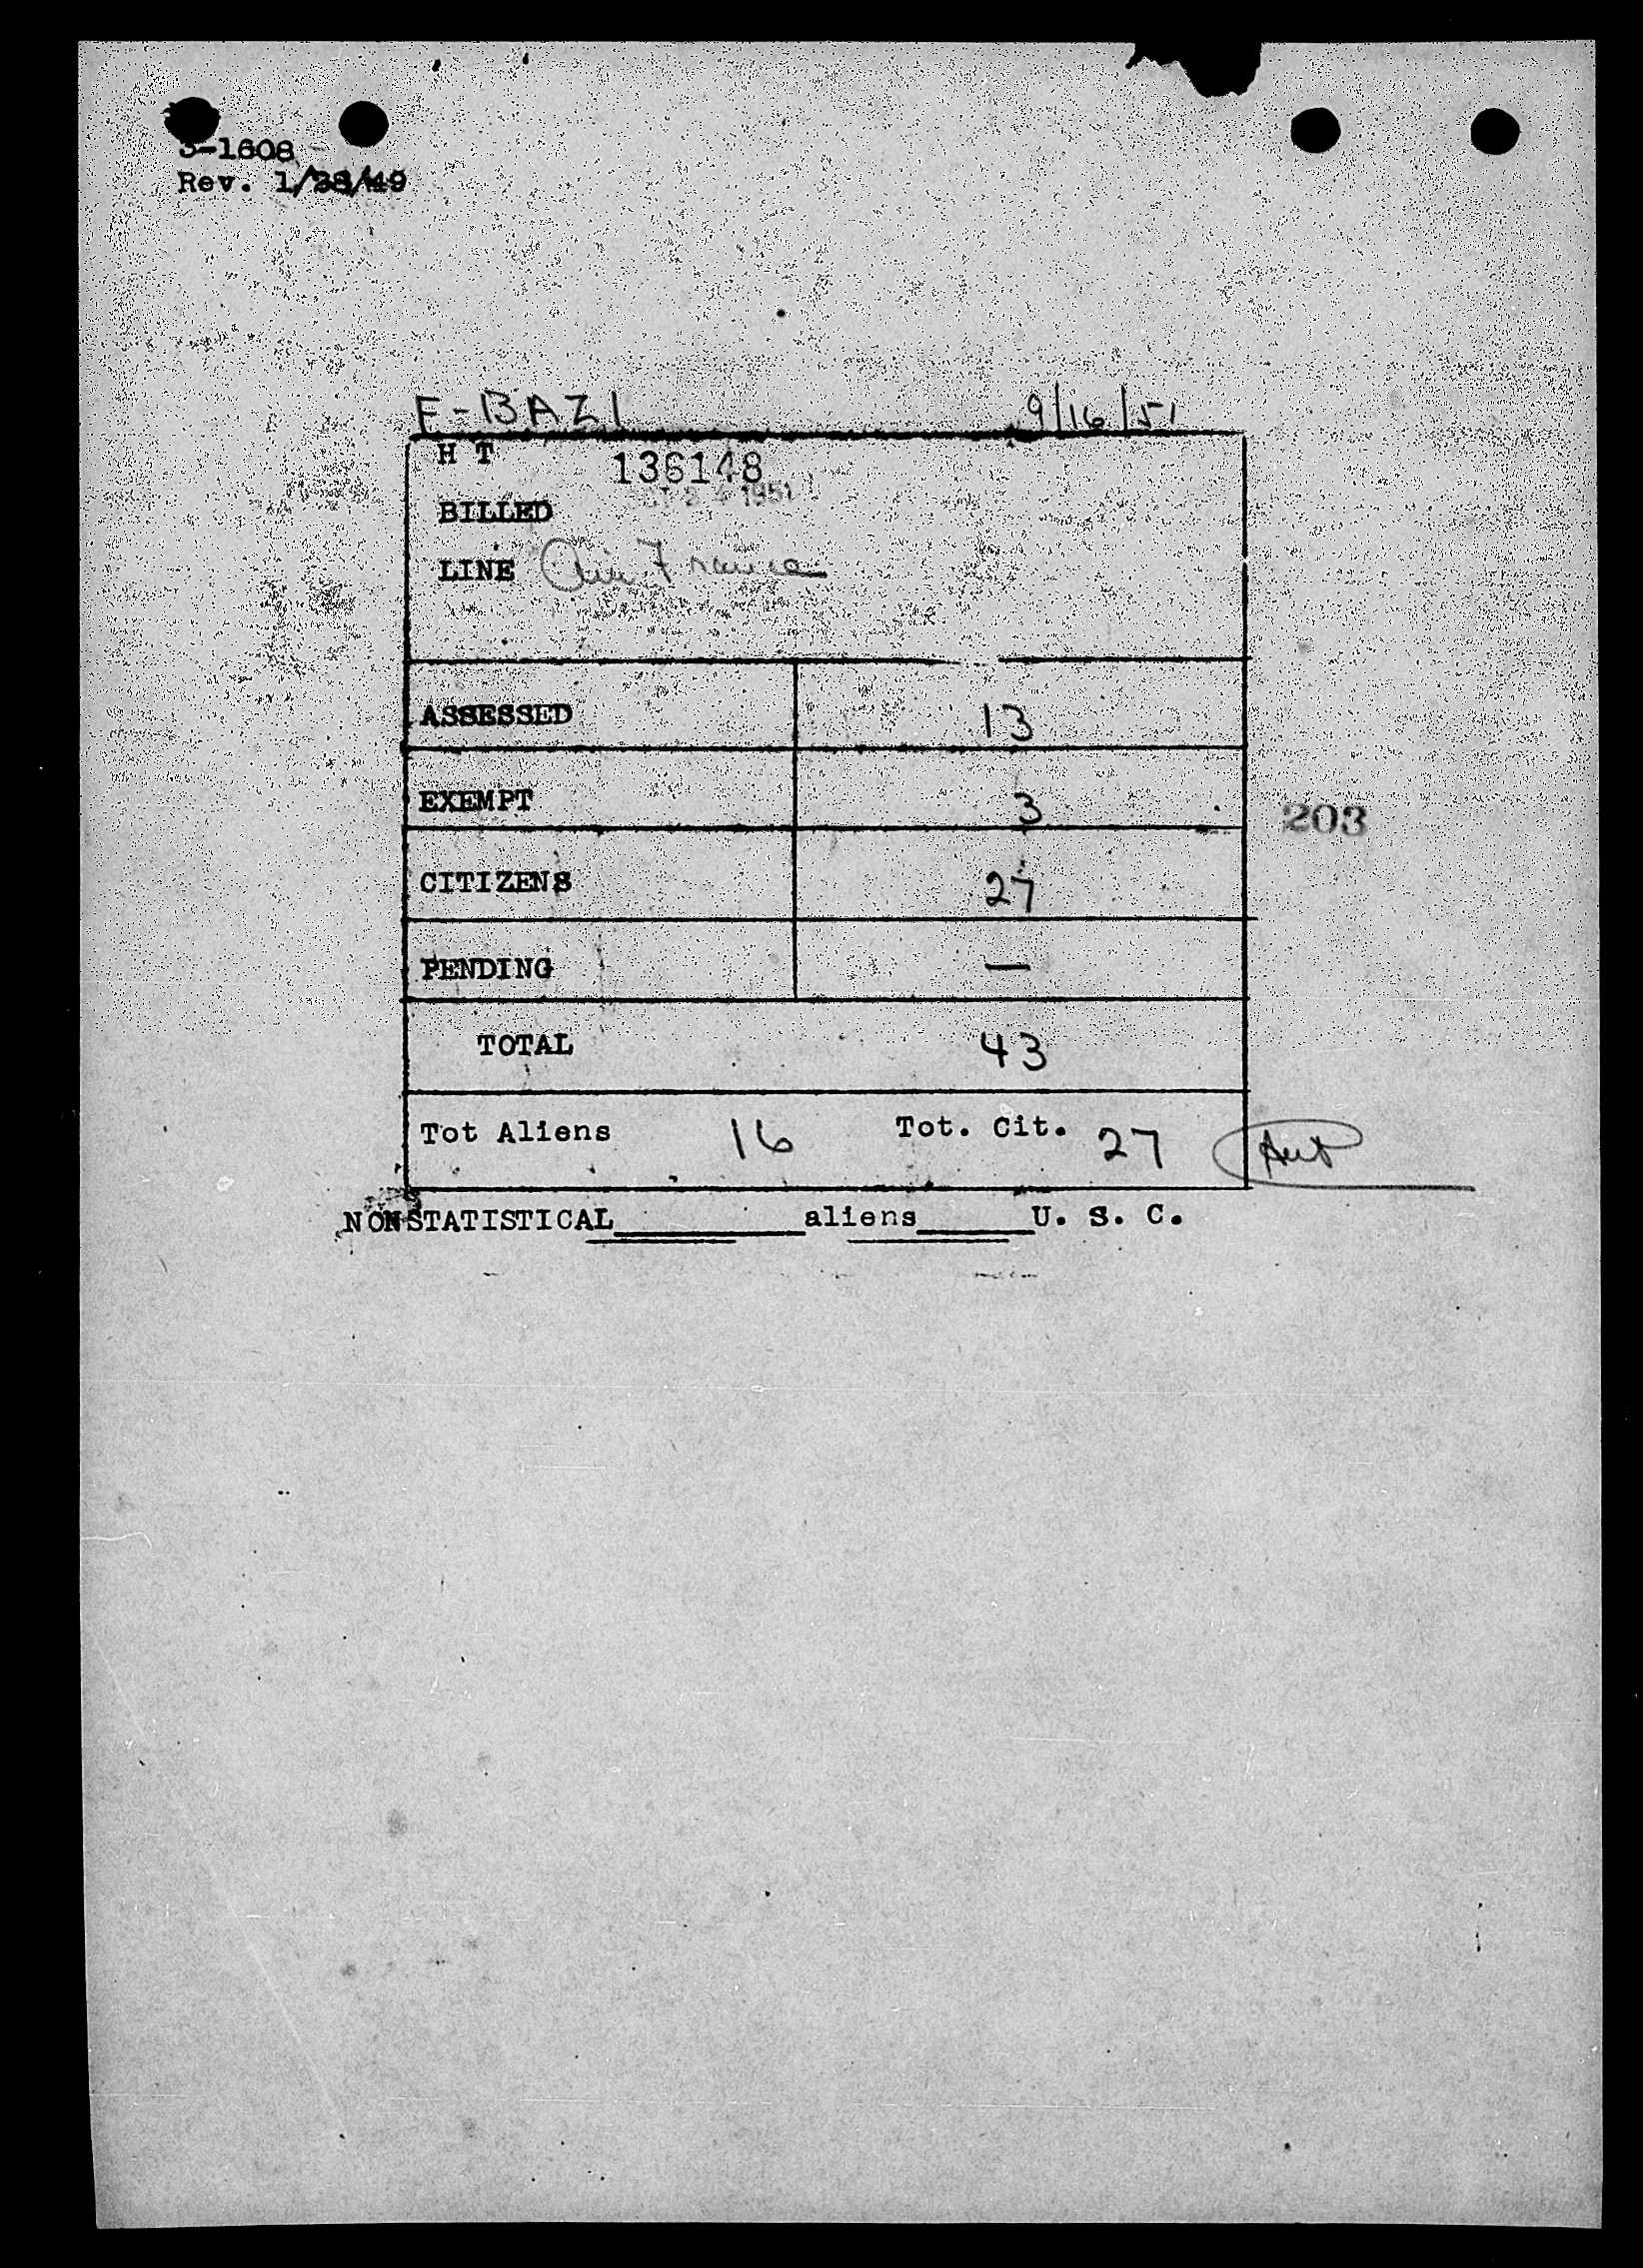 3-1608
Rev. 1/28/49
F-BAZI 9/16/51
H T 136148
1951
BILLED
LINE Air France
ASSESSED 13
EXEMPT 3
203
CITIZENS 27
PENDING —
TOTAL 43
Tot Aliens 16 Tot. Cit. 27
NONSTATISTICAL__________aliens______U. S. C.